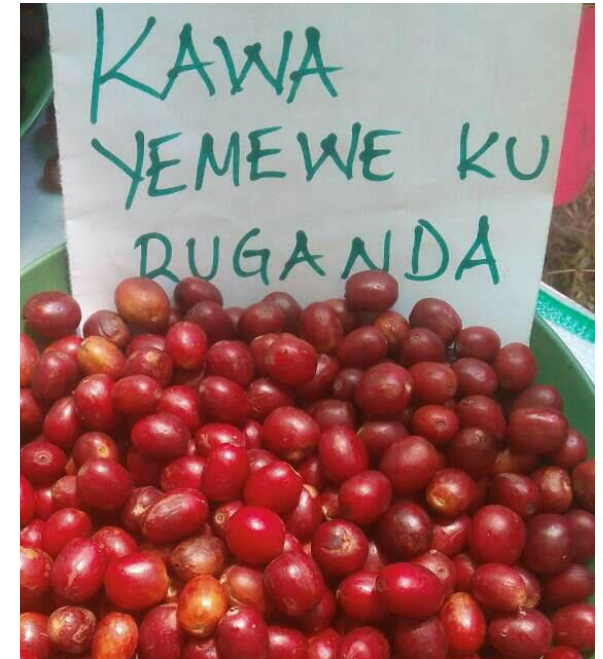 KAWA
YEMEWE KU
RUGANDA